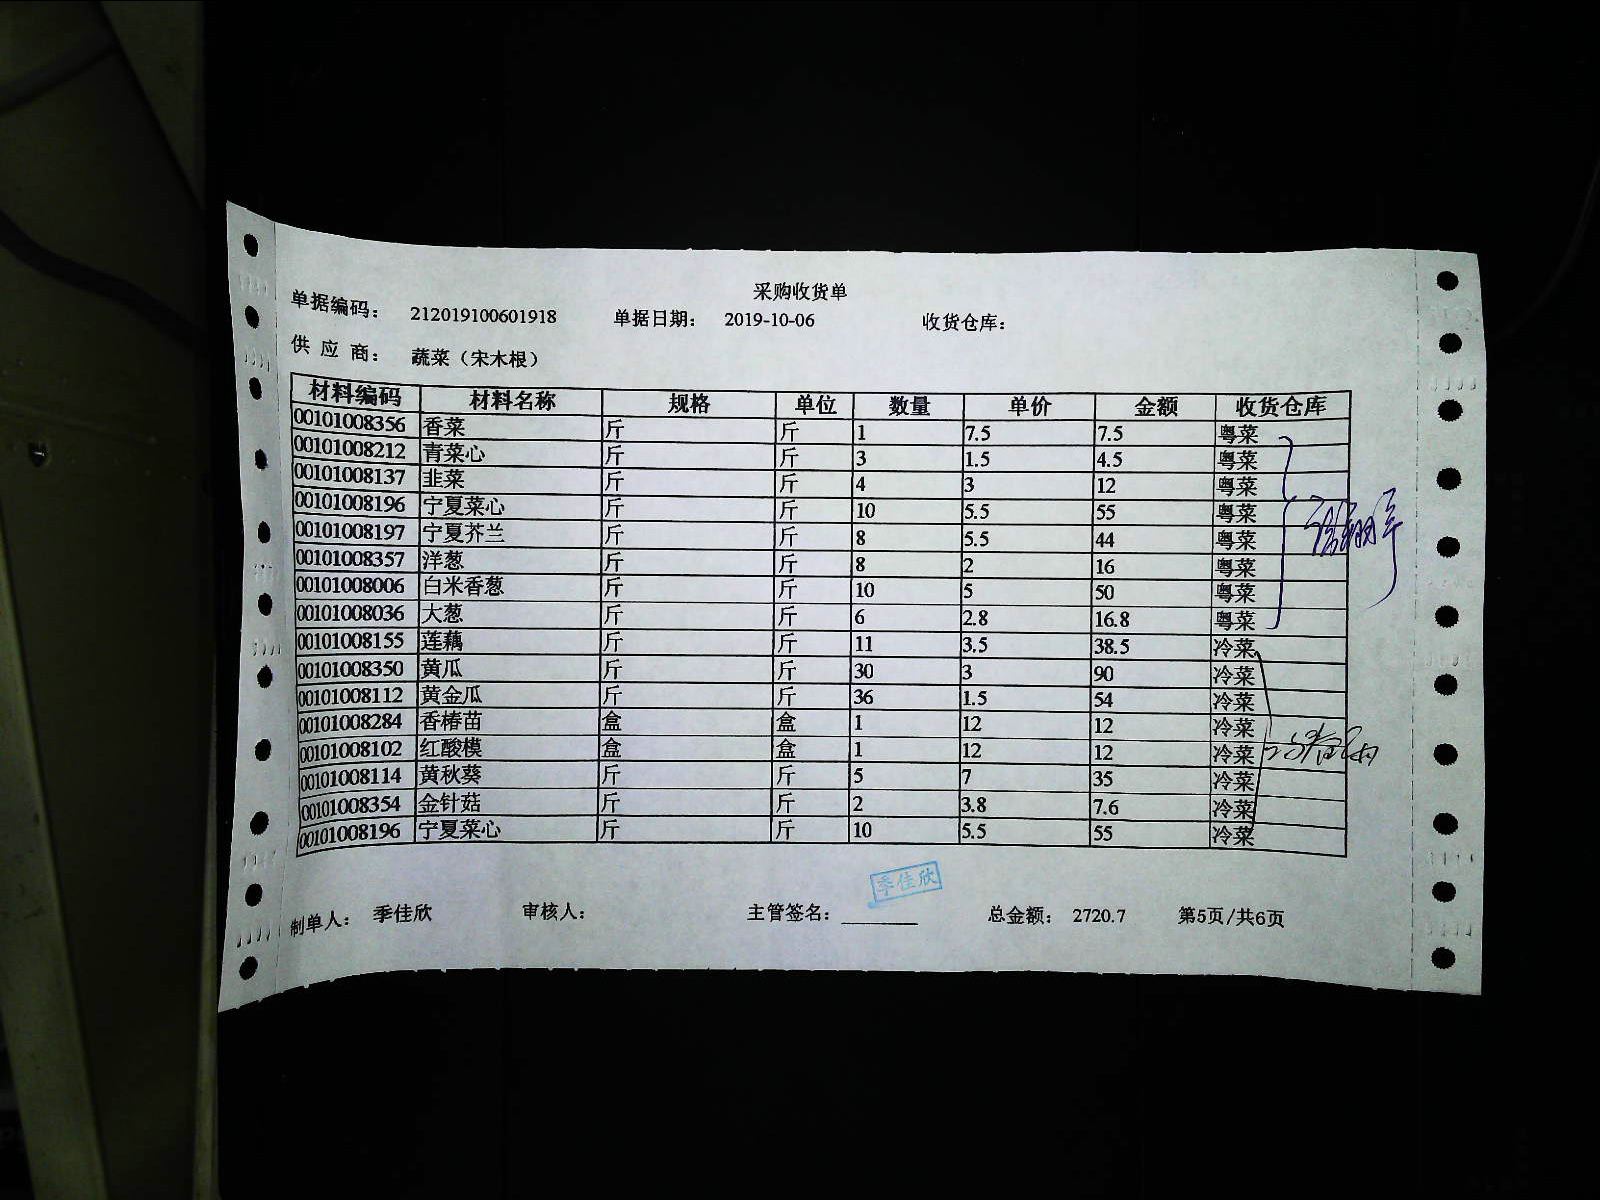 采购收货单
单据编码： 212019100601918 单据日期： 2019-10-06 收货仓库：
供 应 商： 蔬菜（宋木根）
材料编码 材料名称 规格 单位 数量 单价 金额 收货仓库
00101008356 香菜 斤 斤 1 7.5 7.5 粤菜
00101008212 青菜心 斤 斤 3 1.5 4.5 粤菜
00101008137 韭菜 斤 斤 4 3 12 粤菜
00101008196 宁夏菜心 斤 斤 10 5.5 55 粤菜
00101008197 宁夏芥兰 斤 斤 8 5.5 44 粤菜
00101008357 洋葱 斤 斤 8 2 16 粤菜
00101008006 白米香葱 斤 斤 10 5 50 粤菜
00101008036 大葱 斤 斤 6 2.8 16.8 粤菜
00101008155 莲藕 斤 斤 11 3.5 38.5 冷菜
00101008350 黄瓜 斤 斤 30 3 90 冷菜
00101008112 黄金瓜 斤 斤 36 1.5 54 冷菜
00101008284 香椿苗 盒 盒 1 12 12 冷菜
00101008102 红酸模 盒 盒 1 12 12 冷菜
00101008114 黄秋葵 斤 斤 5 7 35 冷菜
00101008354 金针菇 斤 斤 2 3.8 7.6 冷菜
00101008196 宁夏菜心 斤 斤 10 5.5 55 冷菜
季佳欣
制单人： 季佳欣 审核人： 主管签名： 总金额： 2720.7 第5页/共6页